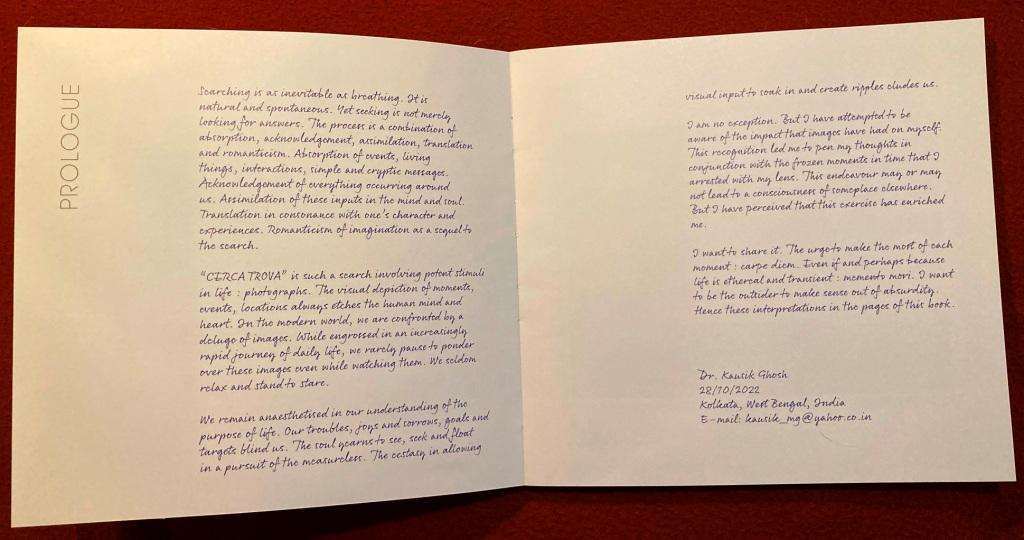 PROLOGUE
Searching is as inevitable as breathing. It is
natural and spontaneous. Yet seeking is not merely
looking for answers. The process is a combination of
absorption, acknowledgement, assimilation, translation
and romanticism. Absorption of events, living
things, interactions, simple and cryptic messages.
Acknowledgement of everything occurring around
us. Assimilation of these inputs in the mind and soul.
Translation in consonance with one's character and
experiences. Romanticism of imagination as a sequel to
the search.
"CERCA TROVA" is such a search involving potent stimuli
in life : photographs. The visual depiction of moments,
events, locations always etches the human mind and
heart. In the modern world, we are confronted by a
deluge of images. While engrossed in an increasingly
rapid journey of daily life, we rarely pause to ponder
over these images even while watching them. We seldom
relax and stand to stare.
We remain anaesthetised in our understanding of the
purpose of life. Our troubles, joys and sorrows, goals and
targets blind us. The soul yearns to see, seek and float
in a pursuit of the measureless. The ecstasy in allowing
visual input to soak in and create ripples eludes us.
I am no exception. But I have attempted to be
aware of the impact that images have had on myself.
This recognition led me to pen my thoughts in
conjunction with the frozen moments in time that I
arrested with my lens. This endeavour may or may
not lead to a consciousness of someplace elsewhere.
But I have perceived that this exercise has enriched
me.
I want to share it. The urge to make the most of each
moment : carpe diem. Even if and perhaps because
life is ethereal and transient : memento mori. I want
to be the outsider to make sense out of absurdity.
Hence these interpretations in the pages of this book.
Dr. Kausik Ghosh
28/10/2022
Kolkata, West Bengal, India
E-mail: kausik_mg@yahoo.co.in